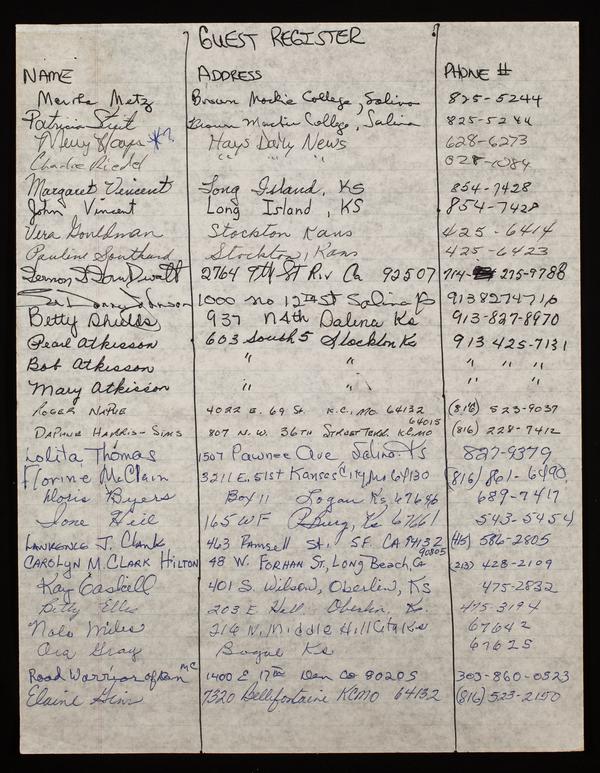 GUEST REGISTER
NAME ADDRESS PHONE #
Metz Brown Mackie College, Salina 825-5244
Patricia Brown Mackie College, Salina 825-5244
Hays Daily News 628-6273
Charlie Riedel " " "
Margaret Vincent Long Island, KS 854-7428
John Vincent Long Island, KS 854-7428
Vera Gouldman Stockton Kans 425-6414
Pauline Southard Stockton, Kans 425-6423
2764 9th St Riv Ca 92507 714- 275-9788
Johnson 1000 No 12th St Salina 913 827 4710
Betty Shields 937 N 4th Salina Ks 913-827-8970
Pearl Atkisson 603 South 5 Stockton Ks 913 425-7131
Bob Atkisson " " " " "
Mary Atkisson " " " " "
ROGER 4022 E. 69 St. K.C. MO 64132 (816) 523-9037
DAPHNE HARRIS-SIMS 807 N.W. 36TH STREET TERR. KCMO 64015 (816) 228-7412
Lolita Thomas 1507 Pawnee Ave Salina KS 827-9379
Florine McClain 3211 E. 51st Kansas City, Mo 64130 (816) 861-6490
Doris Byers Box 11 Logan Ks, 67646 689-7417
Ione 165 WF Pburg, Ks 67661 543-5454
LAWRENCE J. Clark 463 Ramsell St. SF. CA 94132 (415) 586-2805
CAROLYN M. CLARK HILTON 48 W. FORHAN ST, LONG BEACH, CA 90805 (213) 428-2109
Kay Gaskell 401 S. Wilson, Oberlin, KS 475-2832
Betty 203 E. Hall Oberlin, Ks. 475-3194
Nola Miles 216 N. Middle Hill City Ks 67642
Ora Gray Bogue Ks 67625
Road Warrior of Den MC 1400 E 17th Den Co 80205 303-860-0523
Elaine 7320 Bellefontaine KCMO 64132 (816) 523-2150